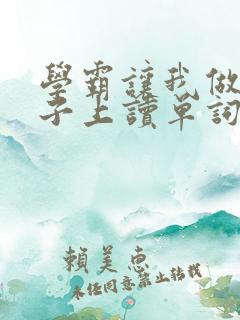 學霸讓我做
子上讀單詞
賴美惠
未經同意禁止轉載